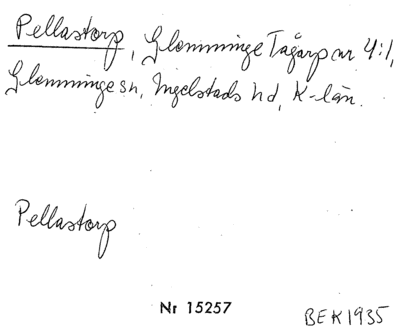 Pellastorp, Glemminge Tågarp nr 4:1,
Glemminge sn, Ingelstads hd, K-län.
Pellastorp
Nr 15257
BEK 1935